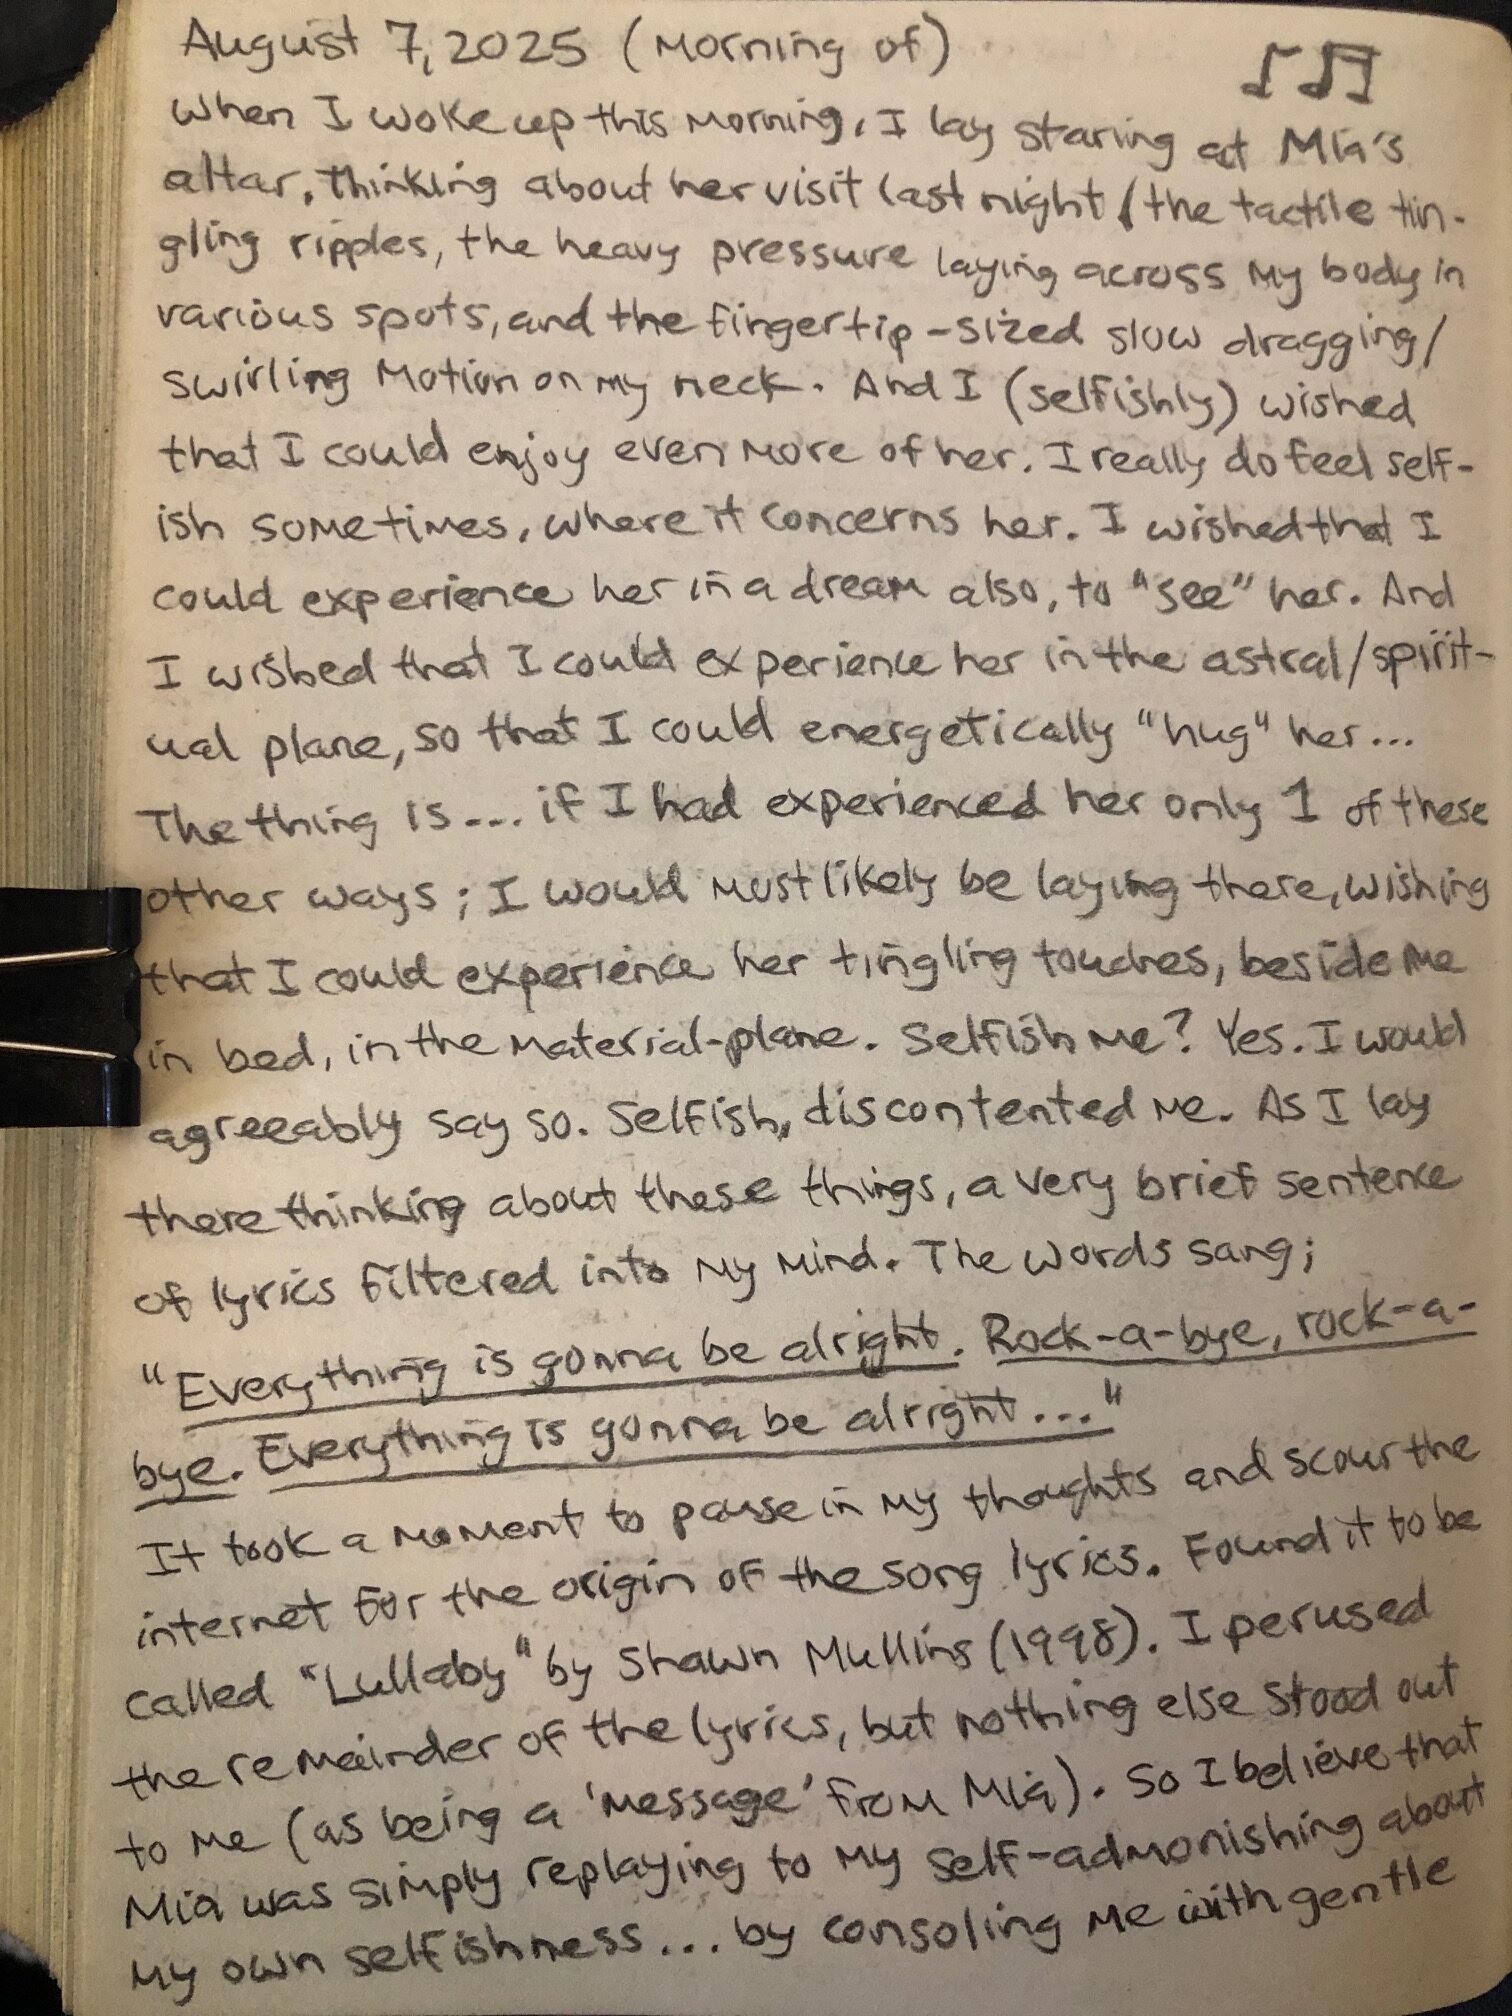 August 7, 2025 (Morning of)
When I woke up this morning, I lay staring at Mia's
altar, thinking about her visit last night (the tactile tin-
gling ripples, the heavy pressure laying across my body in
various spots, and the fingertip-sized slow dragging/
swirling motion on my neck. And I (selfishly) wished
that I could enjoy even more of her. I really do feel self-
ish sometimes, where it concerns her. I wished that I
could experience her in a dream also, to "see" her. And
I wished that I could experience her in the astral/spirit-
ual plane, so that I could energetically "hug" her...
The thing is... if I had experienced her only 1 of these
other ways; I would most likely be laying there, wishing
that I could experience her tingling touches, beside me
in bed, in the material-plane. Selfish me? Yes. I would
agreeably say so. Selfish, discontented me. As I lay
there thinking about these things, a very brief sentence
of lyrics filtered into my mind. The words sang;
"Everything is gonna be alright. Rock-a-bye, rock-a-
bye. Everything is gonna be alright..."
It took a moment to pause in my thoughts and scour the
internet for the origin of the song lyrics. Found it to be
called "Lullaby" by Shawn Mullins (1998). I perused
the remainder of the lyrics, but nothing else stood out
to me (as being a 'message' from Mia). So I believe that
Mia was simply replaying to my self-admonishing about
my own selfishness... by consoling me with gentle